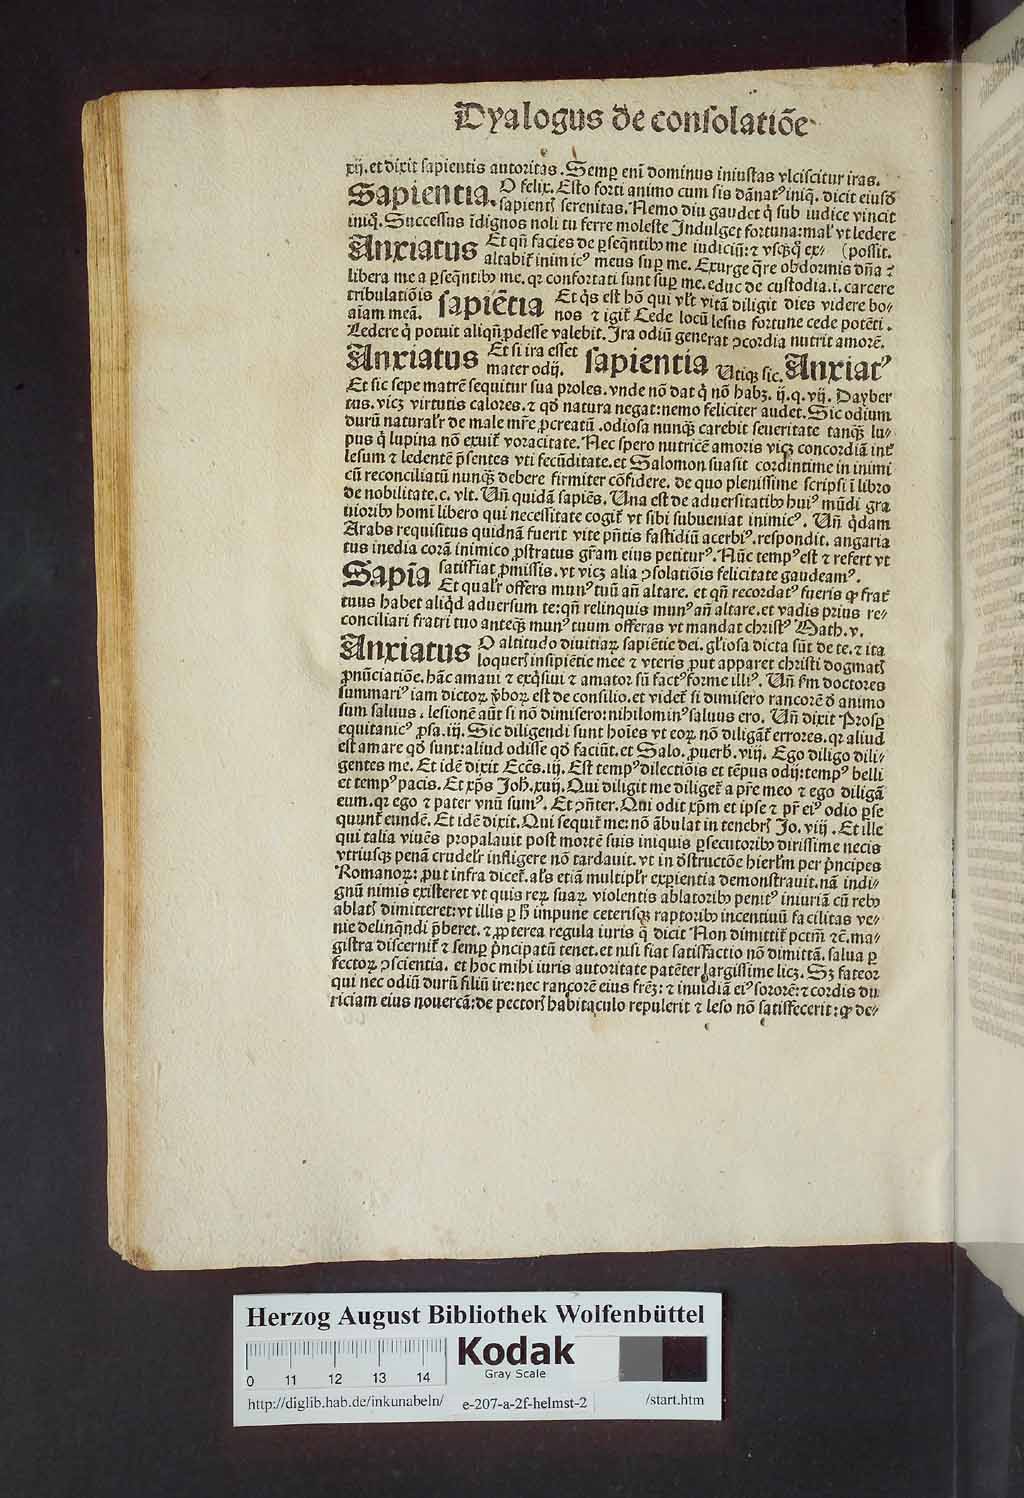 Dyalogus de consolatiōe
xij. et dixit sapientis autoritas. Semꝑ enī dominus iniustas vlciscitur iras.
Sapientia. O felix. Esto forti animo cum sis dānatꝰ iniq̄. dicit eiusdē
sapientꝭ serenitas. Nemo diu gaudet q̄ sub iudice vincit
iniq̊. Successus īdignos noli tu ferre moleste Indulget fortuna: mal' vt ledere
Anxiatus Et qn̄ facies de ꝑseq̄ntibꝰ me iudiciū: ⁊ vsqꝫq̊ ex⸗ (possit.
altabit̄ inimicꝰ meus suꝑ me. Exurge q̄re obdormis dn̄a ⁊
libera me a ꝑseq̄ntibꝰ me. qꝛ confortati sunt suꝑ me. educ de custodia .i. carcere
tribulatiōis sapiētia Et q̊s est hō qui vl't vitā diligit dies videre bo⸗
aīam meā. nos ⁊ igit̄ Cede locū lesus fortune cede potēti.
Ledere q̊ potuit aliqn̄ ꝓdesse valebit. Ira odiū generat ꝯcordia nutrit amorē.
Anxiatus Et si ira esset sapientia Utiqꝫ sic. Anxiatꝰ
mater odij.
Et sic sepe matrē sequitur sua proles. vnde nō dat q̊ nō habꝫ. ij. q. vij. Dayber
tus. vicꝫ virtutis calores. ⁊ qd̄ natura negat: nemo feliciter audet. Sic odium
durū natural'r de male mr̄e ꝓcreatū. odiosa nunqꝫ carebit seueritate tanqꝫ lu⸗
pus q̊ lupina nō exuit̄ voracitate. Nec spero nutricē amoris vicꝫ concordiā int̄
lesum ⁊ ledentē p̄sentes vti fecūditate. et Salomon suasit cordintime in inimi
cū reconciliatū nunqꝫ debere firmiter cōfidere. de quo plenissime scripsi ī libro
de nobilitate. c. vlt. Un̄ quidā sapiēs. Una est de aduersitatibꝰ huiꝰ mūdi gra
uioribꝰ homī libero qui necessitate cogit̄ vt sibi subueniat inimicꝰ. Un̄ q̊dam
Arabs requisitus quidnā fuerit vite p̄ntis fastidiū acerbiꝰ. respondit. angaria
tus inedia corā inimico ꝓstratus gr̄am eius petiturꝰ. Nūc tempꝰ est ⁊ refert vt
Sapīa satisfiat ꝓmissis. vt vicꝫ alia ꝯsolatiōis felicitate gaudeamꝰ.
Et qual'r offers munꝰ tuū an̄ altare. et qn̄ recordatꝰ fueris ꝙ frat̄
tuus habet aliq̊d aduersum te: qn̄ relinquis munꝰ an̄ altare. et vadis prius re⸗
conciliari fratri tuo anteqꝫ munꝰ tuum offeras vt mandat christꝰ Math. v.
Anxiatus O altitudo diuitiaꝝ sapiētie dei. gl'iosa dicta sūt de te. ⁊ ita
loquerꝭ insipiētie mee ⁊ vteris ꝓut apparet christi dogmatꝭ
ꝓnūciatiōe. hāc amaui ⁊ exq̊siui ⁊ amator sū factꝰ forme illiꝰ. Un̄ scd̄m doctores
summariꝰ iam dictoꝝ v̓boꝝ est de consilio. et videt̄ si dimisero rancorē d̄ animo
sum saluus. lesionē aūt si nō dimisero: nihilominꝰ saluus ero. Un̄ dixit Prosꝑ
equitanicꝰ ꝓsa. iij. Sic diligendi sunt hoīes vt eoꝝ nō diligāt̄ errores. qꝛ aliud
est amare qd̄ sunt: aliud odisse qd̄ faciūt. et Salo. ꝓuerb. viij. Ego diligo dili⸗
gentes me. Et idē dixit Eccēs. iij. Est tempꝰ dilectiōis et tēpus odij: tempꝰ belli
et tempꝰ pacis. Et xp̄s Joh̄. xiiij. Qui diligit me diliget̄ a pr̄e meo ⁊ ego diligā
eum. qꝛ ego ⁊ pater vnū sumꝰ. Et ꝯn̄ter. Qui odit xp̄m et ipse ⁊ pr̄ eiꝰ odio ꝑse
quunt̄ eundē. Et idē dixit. Qui sequit̄ me: nō ābulat in tenebrꝭ Jo. viij. Et ille
qui talia viuēs propalauit post mortē suis iniquis ꝑsecutoribꝰ dirissime necis
vtriusqꝫ penā crudel'r infligere nō tardauit. vt in d̄structōe hierl'm per p̊ncipes
Romanoꝝ: ꝓut infra dicet̄. al's etiā multipl'r exꝑientia demonstrauit. nā indi⸗
gnū nimis existeret vt quis reꝝ suaꝝ violentis ablatoribꝰ penitꝰ iniuriā cū rebꝰ
ablatꝭ dimitteret: vt illis ꝑ h̄ impune ceterisqꝫ raptoribꝰ incentiuū facilitas ve⸗
nie delinq̄ndi p̄beret. ⁊ ꝓpterea regula iuris q̄ dicit Non dimittit̄ pctm̄ ⁊c̄. ma⸗
gistra discernit̄ ⁊ semꝑ p̊ncipatū tenet. et nisi fiat satisfactio nō dimittā. salua ꝑ
fectoꝝ ꝯscientia. et hoc mihi iuris autoritate patēter largissime licꝫ. Sꝫ fateor
qui nec odiū durū filiū ire: nec rancorē eius fr̄eꝫ: ⁊ inuidiā eiꝰ sororē: ⁊ cordis du
riciam eius nouercā: de pectorꝭ habitaculo repulerit ⁊ leso nō satisfecerit: ꝙ de⸗
Herzog August Bibliothek Wolfenbüttel
Kodak
Gray Scale
0 11 12 13 14
http://diglib.hab.de/inkunabeln/ e-207-a-2f-helmst-2 /start.htm